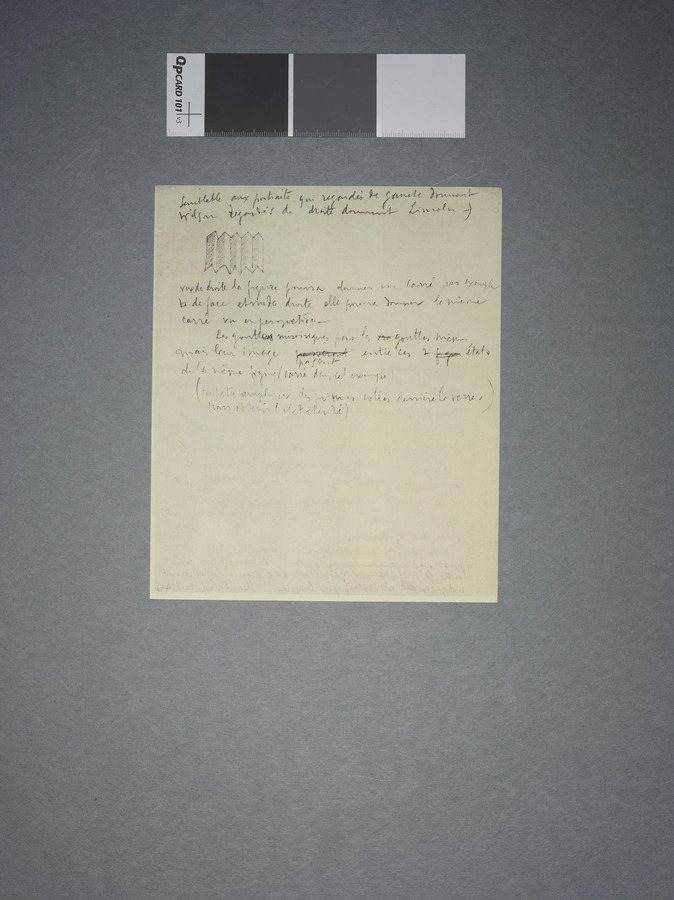 QPCARD 101 v3
semblable aux portraits qui regardés de gauche donnent
Wilson regardés de droite donnent Lincoln -)
vue de droite la figure pourra donner un carré par exemple
de face et vue de droite elle pourra donner le même
carré vu en perspective -
Les gouttes miroiriques pas les gouttes mêmes
mais leur image passent entre ces 2 états
de la même figure (carré dans cet exemple)
(Peut-être employer des prismes collés derrière le verre.
pour obtenir l'effet désiré)